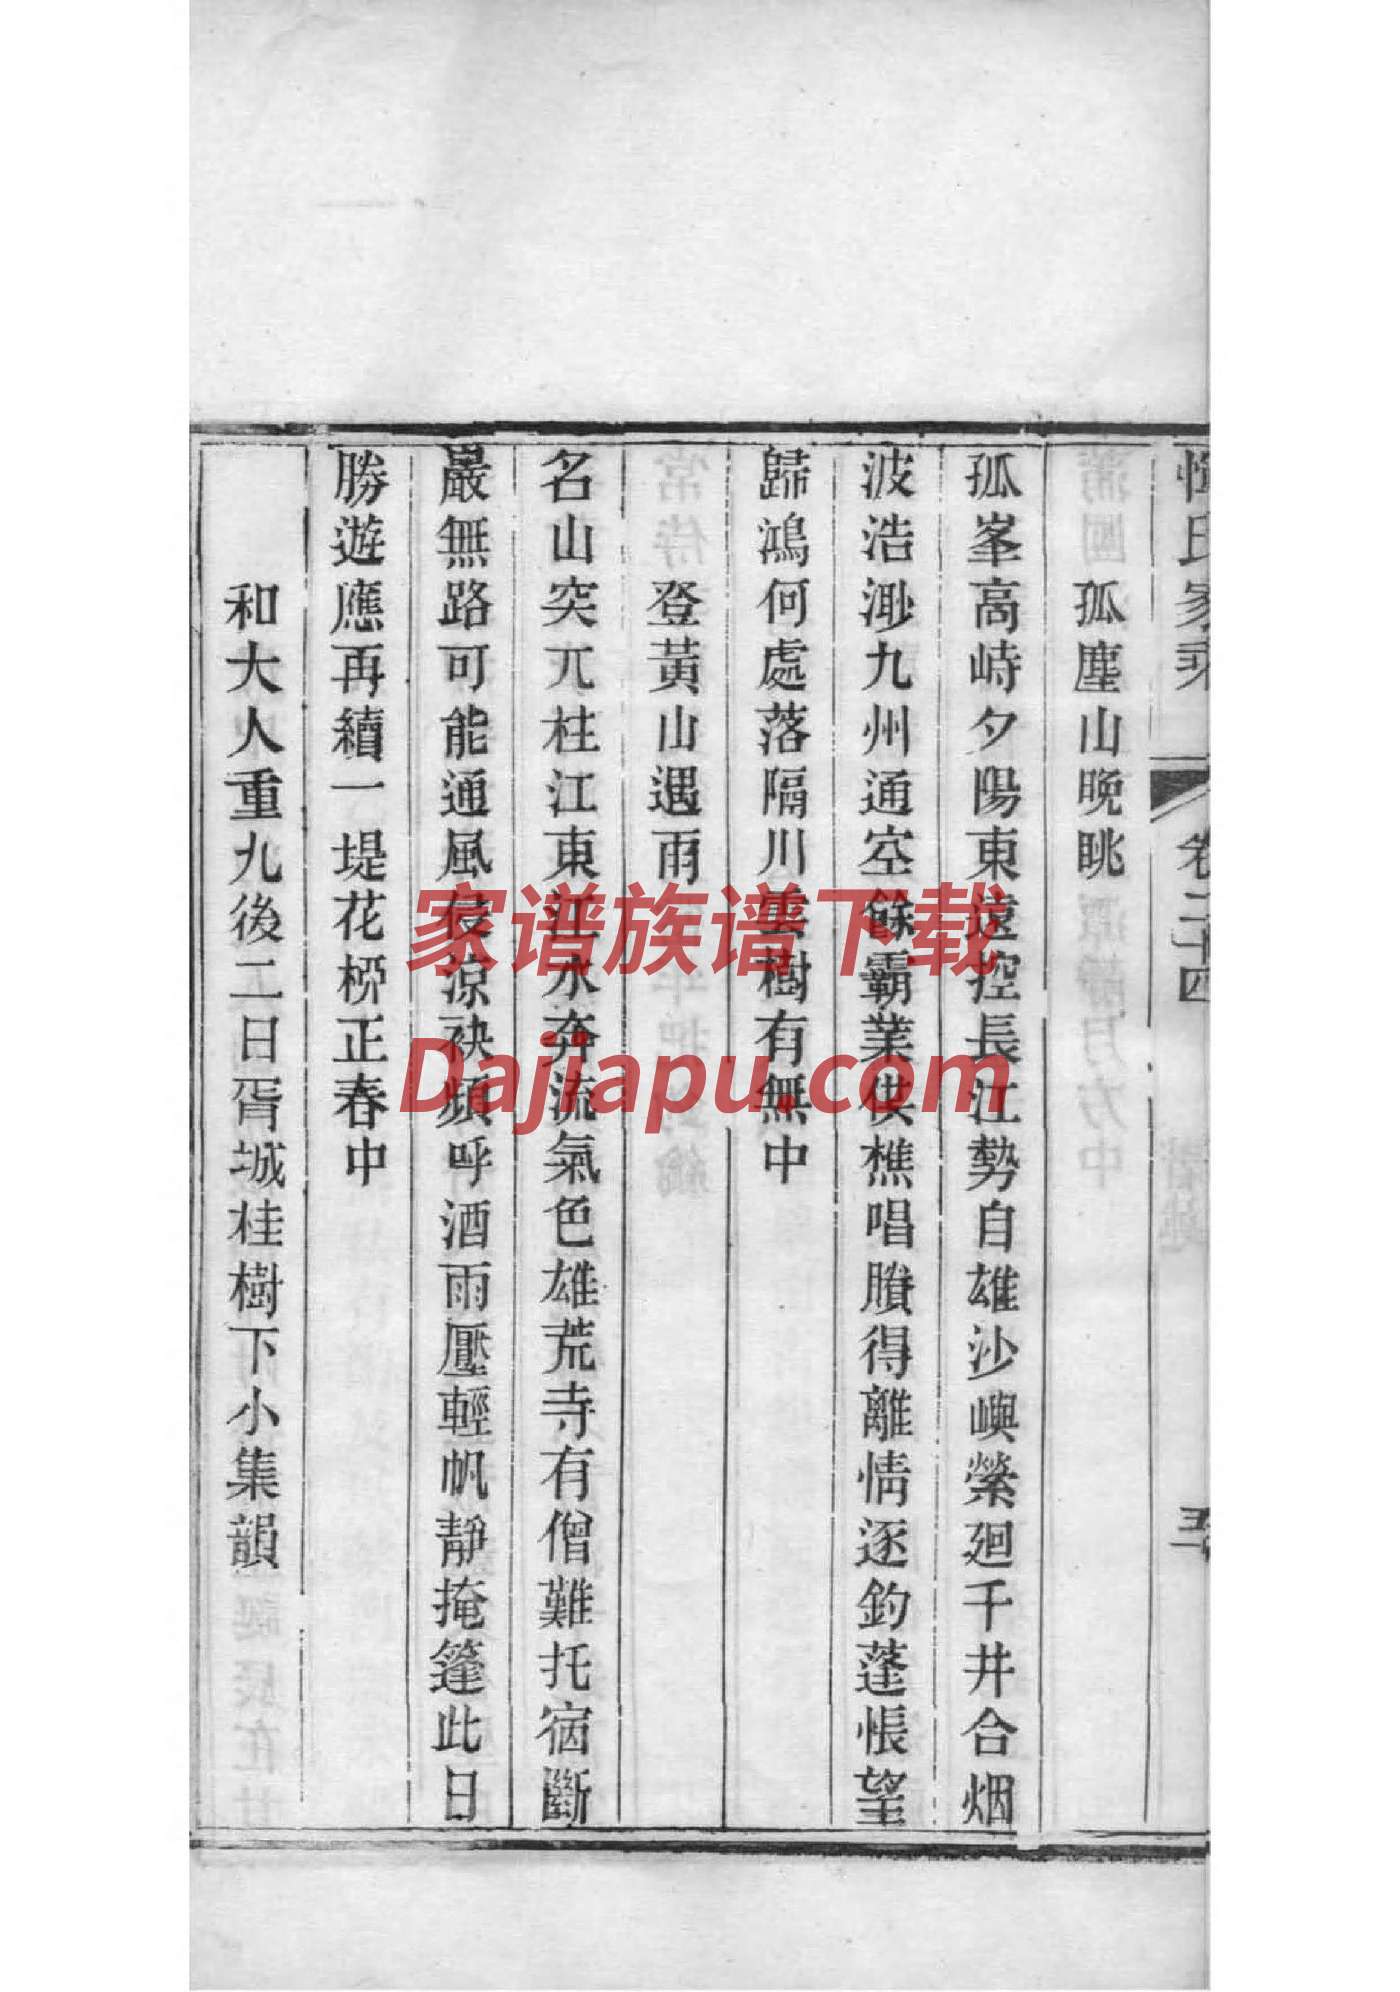 惲氏家乘 卷二十四 五
孤塵山晚眺
孤峯高峙夕陽東遠控長江勢自雄沙嶼縈廻千井合烟
波浩渺九州通空餘霸業供樵唱賸得離情逐釣蓬悵望
歸鴻何處落隔川雲樹有無中
登黃山遇雨
名山突兀柱江東江水奔流氣色雄荒寺有僧難托宿斷
巖無路可能通風侵涼袂頻呼酒雨壓輕帆靜掩篷此日
勝遊應再續一堤花桺正春中
和大人重九後二日胥城桂樹下小集韻
家谱族谱下载
Dajiapu.com